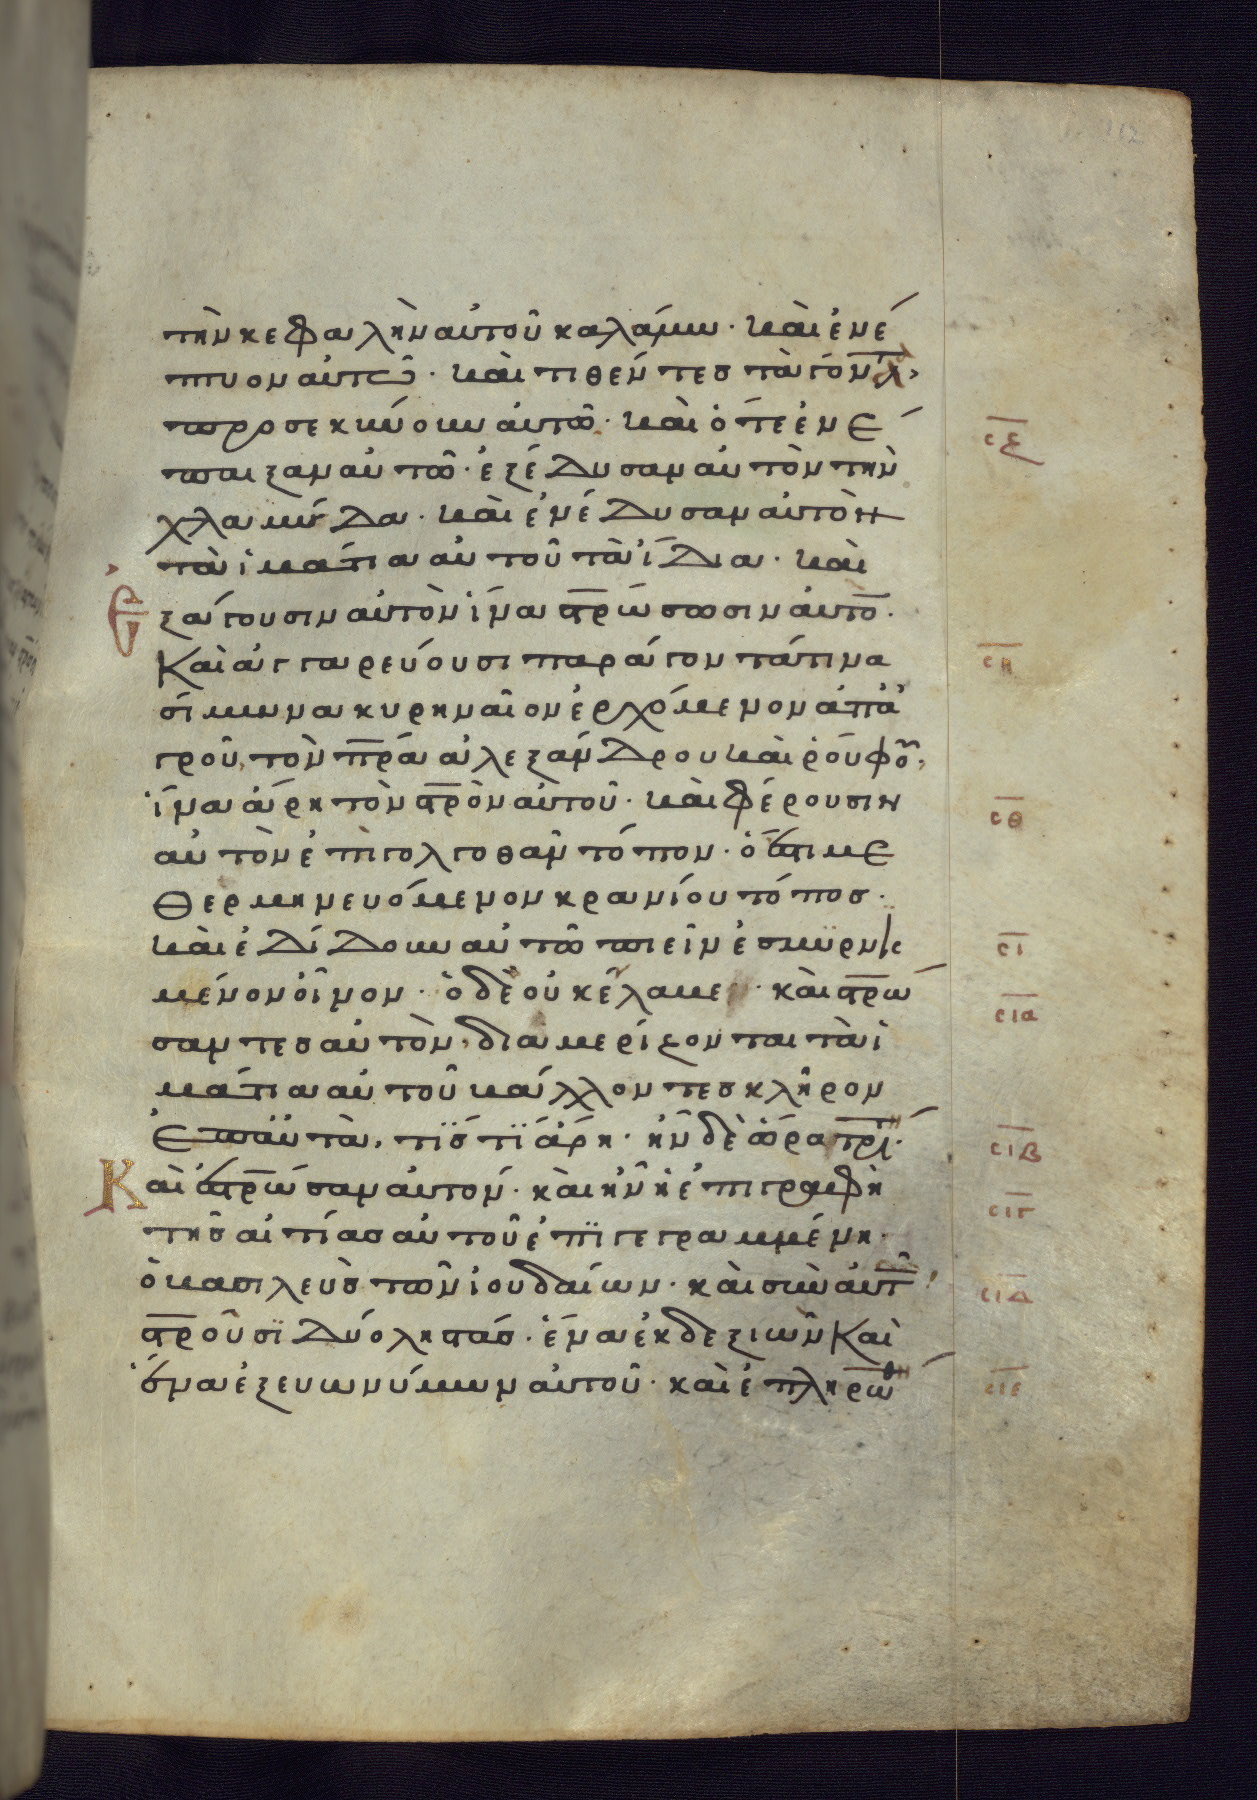 τὴν κεφαλὴν αὐτοῦ καλάμω· καὶ ἐνέ
πτυον αὐτῶ· καὶ τιθέντες τὰ γόνα
προσεκύνουν αὐτῶ· καὶ ὅτε ἐνέ
παιξαν αὐτῶ· ἐξέδυσαν αὐτὸν τὴν
χλαμύδα· καὶ ἐνέδυσαν αὐτὸν
τὰ ἱμάτια αὐτοῦ τὰ ἴδια· καὶ
ἐξάγουσιν αὐτὸν ἵνα σ̅ρ̅ώσωσιν αὐτό̅·
Καὶ ἀγγαρεύουσι παράγοντά τινα
σίμωνα κυρηναῖον ἐρχόμενον ἀπ' ἀ
γροῦ, τὸν π̅ρ̅α ἀλεξάνδρου καὶ ῥούφου,
ἵνα ἄρη τὸν σ̅ρ̅ὸν αὐτοῦ· καὶ φέρουσιν
αὐτὸν ἐπὶ γολγοθᾶν τόπον· ὅ ἐστι με
θερμηνευόμενον κρανίου τόπος·
καὶ ἐδίδουν αὐτῶ πιεῖν ἐσμυρνι
σμένον οἶνον· ὁ δὲ οὐκ ἔλαβε· καὶ σ̅ρ̅ώ
σαντες αὐτὸν, διαμερίζονται τὰ ἱ
μάτια αὐτοῦ βάλλοντες κλῆρον
ἐπ' αὐτὰ, τίς τί ἄρη· ἦν δὲ ὥρα τρί·
Καὶ ἐσ̅ρ̅ώσαν αὐτόν· καὶ ἦν ἡ ἐπιγραφὴ
τῆς αἰτίας αὐτοῦ ἐπιγεγραμμένη·
ὁ βασιλεὺς τῶν ἰουδαίων· καὶ σὺν αὐτ
σ̅ρ̅οῦσι δύο ληστάς· ἕνα ἐκ δεξιῶν Καὶ
ἕνα ἐξ εὐωνύμων αὐτοῦ· καὶ ἐπληρώθη
σ̅η̅
σ̅θ̅
σ̅ι̅
σ̅ι̅α̅
σ̅ι̅β̅
σ̅ι̅γ̅
σ̅ι̅δ̅
σ̅ι̅ε̅